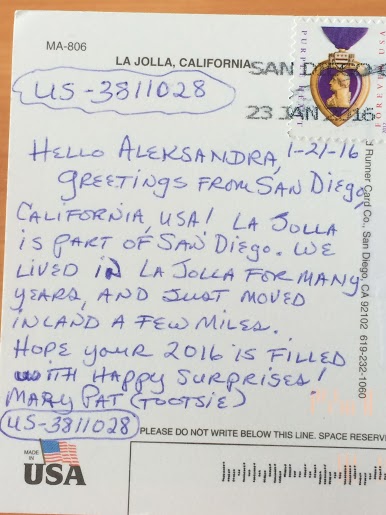 MA-806
LA JOLLA, CALIFORNIA
SAN DIEGO
23 JAN 2016
PURPLE HEART
USA FOREVER
US-3811028
HELLO ALEKSANDRA, 1-21-16
GREETINGS FROM SAN DIEGO,
CALIFORNIA, USA! LA JOLLA
IS PART OF SAN DIEGO. WE
LIVED IN LA JOLLA FOR MANY
YEARS, AND JUST MOVED
INLAND A FEW MILES.
HOPE YOUR 2016 IS FILLED
WITH HAPPY SURPRISES!
MARY PAT (TOOTSIE)
US-3811028
Runner Card Co., San Diego, CA 92102 619-232-1060
PLEASE DO NOT WRITE BELOW THIS LINE. SPACE RESERVE
MADE IN
USA